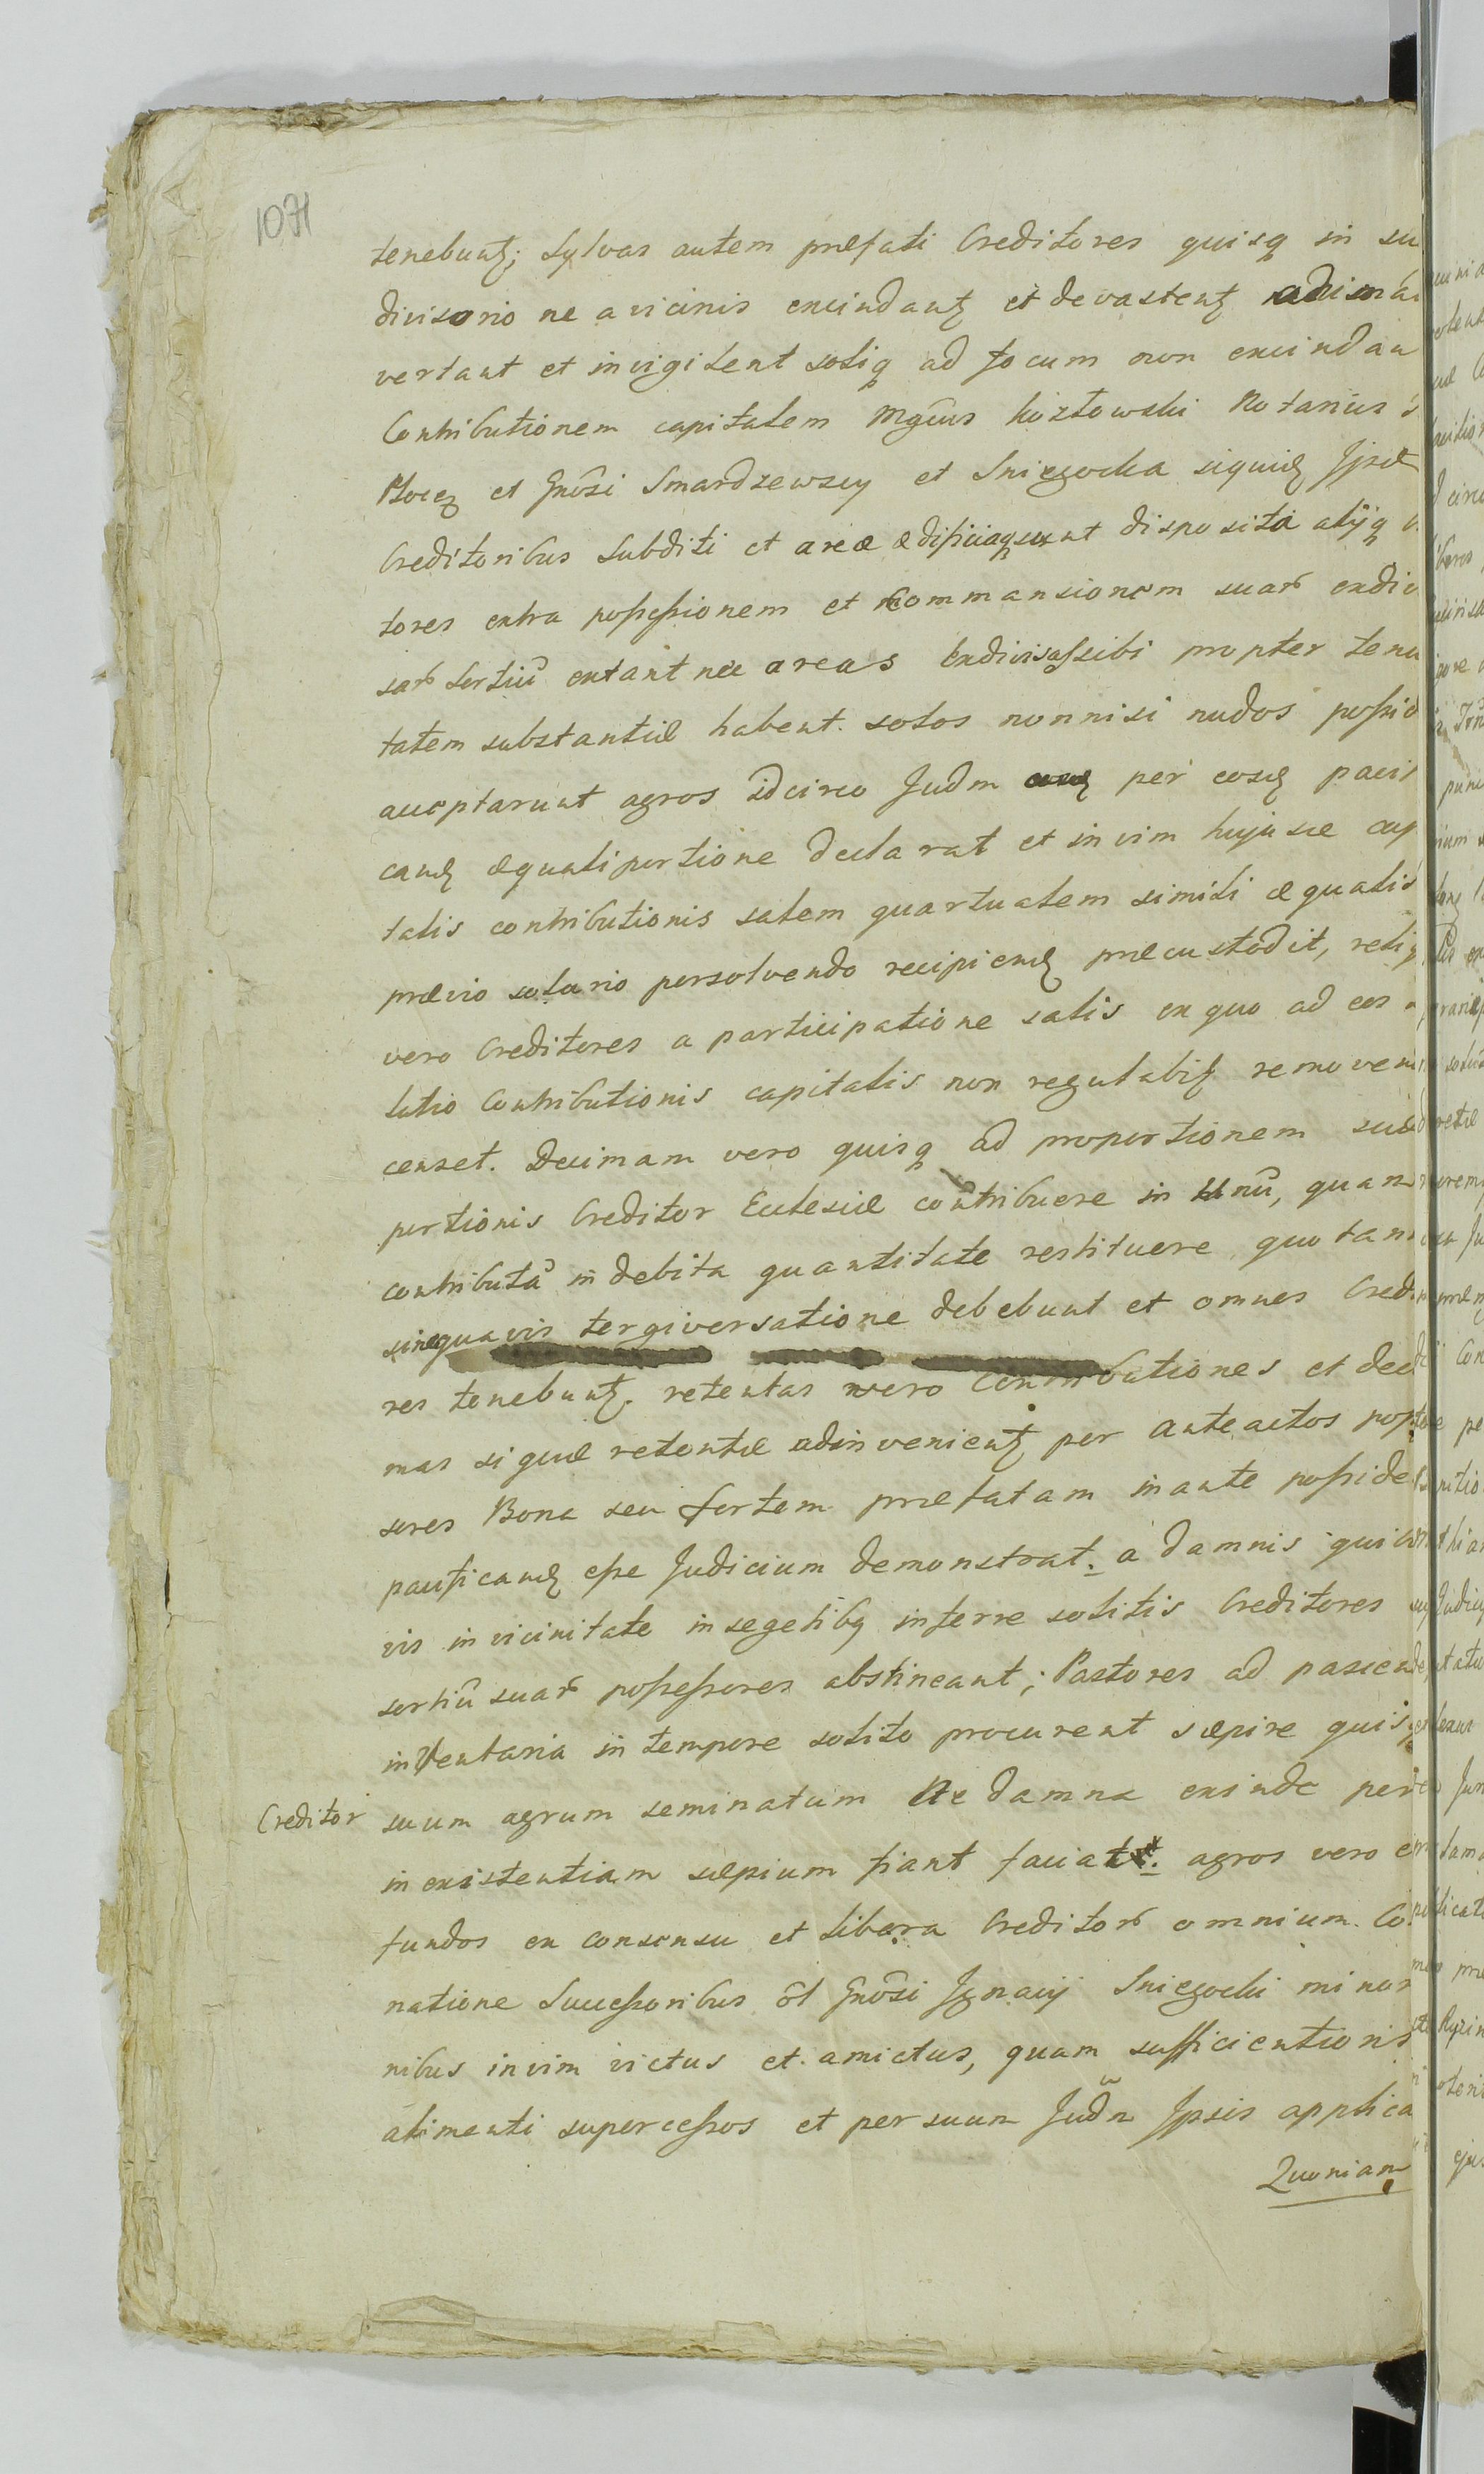 1071
tenebunt; Sylvas autem præfati Creditores quisq in su
divisorio ne a vicinis excindant et devastent adimá
vertant et invigilent soliq ad focum non excindan
Contributionem capitalem Mgcus Koztowski Notarius
Plocen et Gnôsi Smardzewscy et Sniegocka siquid Ipsæ
Creditoribus Subditi et areæ ædificiaq sunt disposita alijq
tores extra poſseſsionem et commansionem suar exdivi
sar Sortiũ extant nec areas Exdivisas sibi propter tenu
tatem substantiæ habent. solos nonnisi nudos poſsid
acceptarunt agros idcirco Judm per eosd pacifi
cand æquali portione declarat et in vim hujusce cap
talis contributionis salem quartualem simili æqualis
prævio solario persolvendo recipiend præcustodit, reliq
vero Creditores a participatione salis ex quo ad eos
latio Contributionis capitalis non regulabit removen
censet. Decimam vero quisq ad proportionem suæ
portionis Creditor Ecclesiæ contribuere in unũ, quam
contributã in debita quantitate restituere quotan
sine quavis tergiversatione debebunt et omnes Credi
res tenebunt. retentas vero Contributiones et deci
mas si quæ retentæ adinvenient per anteactos poſ
sores Bona seu Sortem præfatam inante poſside
pacificand eſse Judicium demonstrat. a damnis quibus
vis in vicinitate in segetibq inferre solitis Creditores
sortiũ suar poſseſsores abstineant; Pastores ad pascend
inventaria in tempore solito procurent sæpire quisq
Creditor suum agrum seminatum Ne damna exinde per
inexistentiam sæpium fiant faciat. agros vero
fundos ex consensu et libera Creditor omnium Co
natione Succeſsoribus ol Gnôsi Ignacij Sniegocki minor
nibus in vim victus et amictus, quam sufficientioris
alimenti superceſsos et per suum Judm Ipsis applica
Quoniam